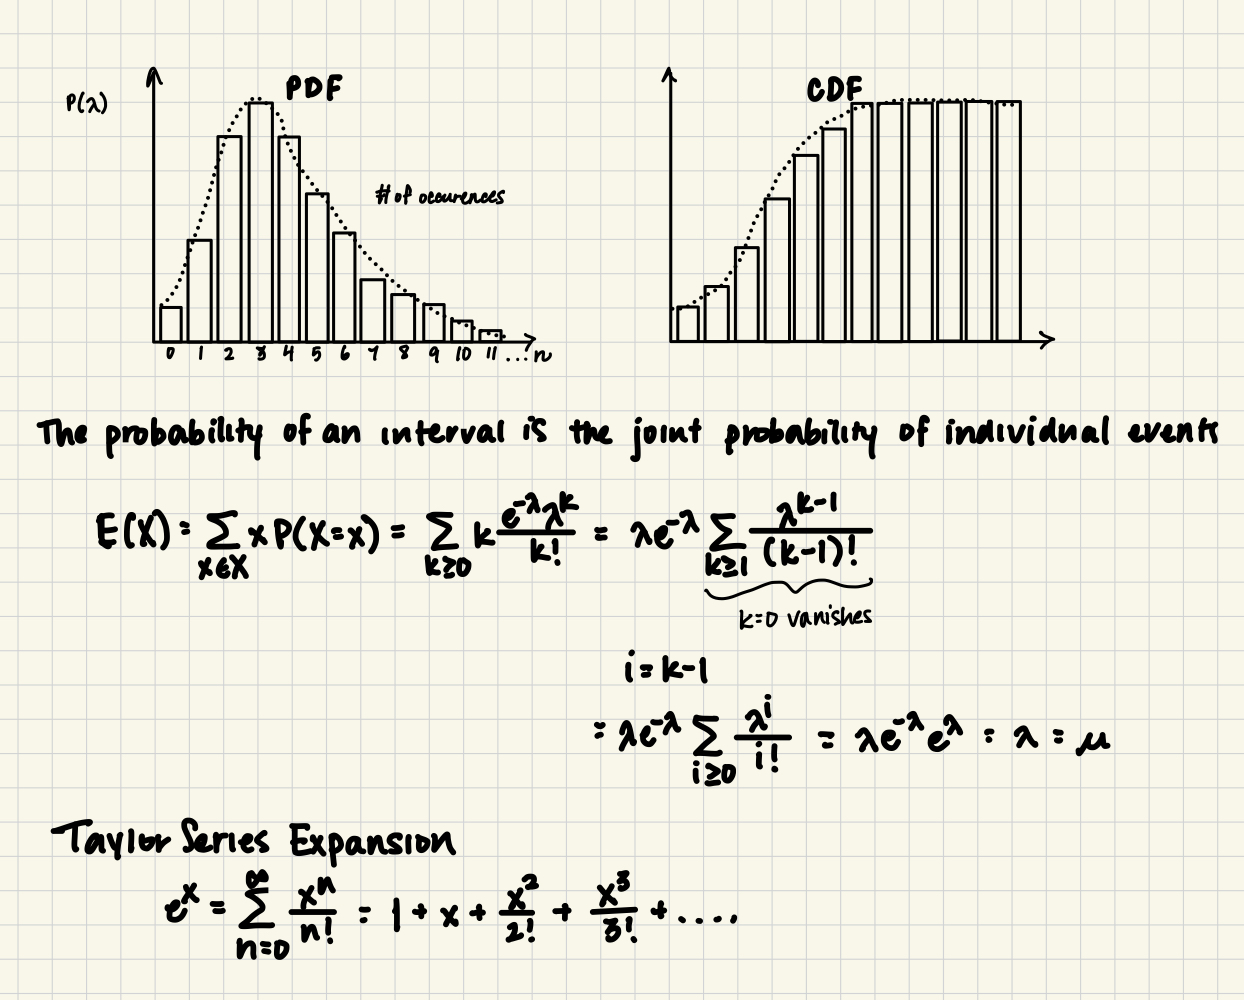 PDF
P(λ)
# of occurences
0 1 2 3 4 5 6 7 8 9 10 11 ... n
CDF
The probability of an interval is the joint probability of individual events
E(X) = ∑_{x∈X} x P(X=x) = ∑_{k≥0} k \frac{e^{-λ}λ^k}{k!} = λe^{-λ} ∑_{k≥1} \frac{λ^{k-1}}{(k-1)!}
k=0 vanishes
i = k-1
= λe^{-λ} ∑_{i≥0} \frac{λ^i}{i!} = λe^{-λ} e^{λ} = λ = μ
Taylor Series Expansion
e^x = ∑_{n=0}^{∞} \frac{x^n}{n!} = 1 + x + \frac{x^2}{2!} + \frac{x^3}{3!} + ....